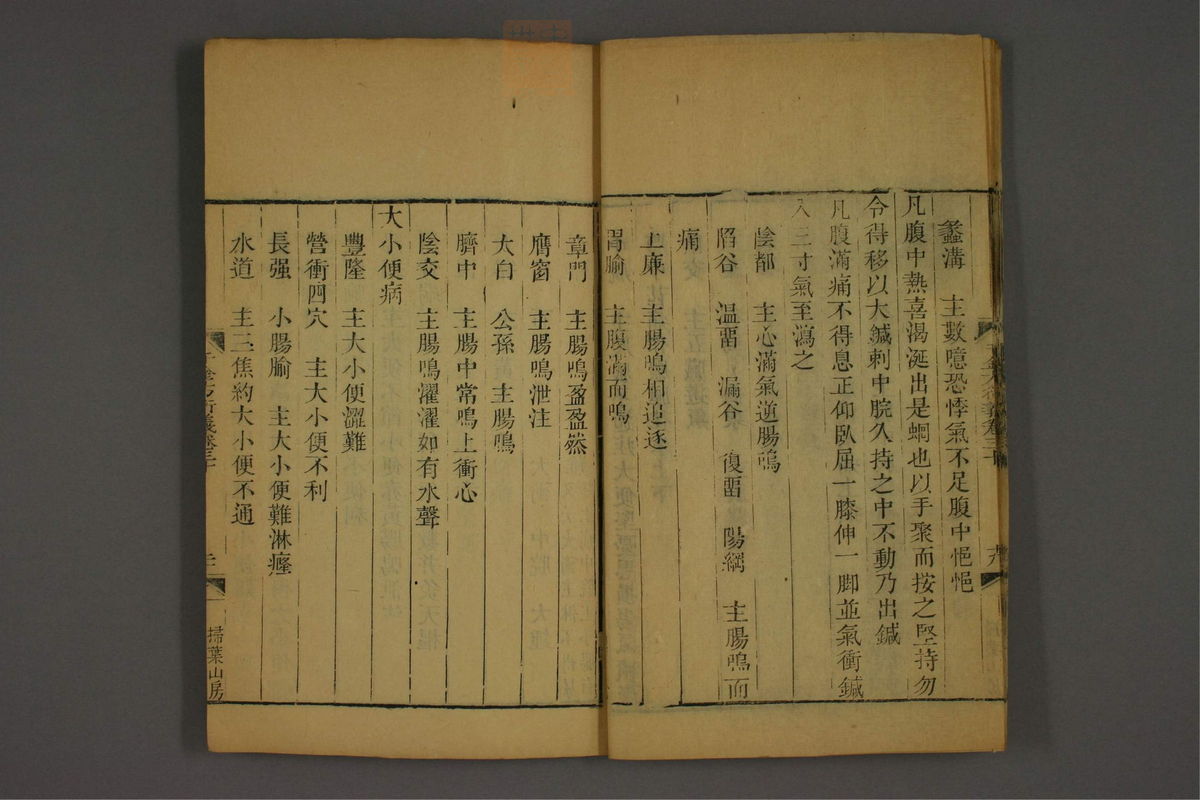 蠡溝　主數噫恐悸氣不足腹中悒悒
凡腹中熱喜渴涎出是蛔也以手聚而按之堅持勿
令得移以大鍼刺中脘久持之中不動乃出鍼
凡腹滿痛不得息正仰臥屈一膝伸一脚並氣衝鍼
入三寸氣至瀉之
陰都　主心滿氣逆腸鳴
陷谷　温畱　漏谷　復畱　陽綱　主腸鳴而
痛
上廉　主腸鳴相追逐
胃腧　主腹滿而鳴
章門　主腸鳴盈盈然
膺窗　主腸鳴泄注
大白　公孫　主腸鳴
臍中　主腸中常鳴上衝心
陰交　主腸鳴濯濯如有水聲
大小便病
豐隆　主大小便澀難
營衝四穴　主大小便不利
長强　小腸腧　主大小便難淋癃
水道　主三焦約大小便不通
千金方衍義卷三十
掃葉山房